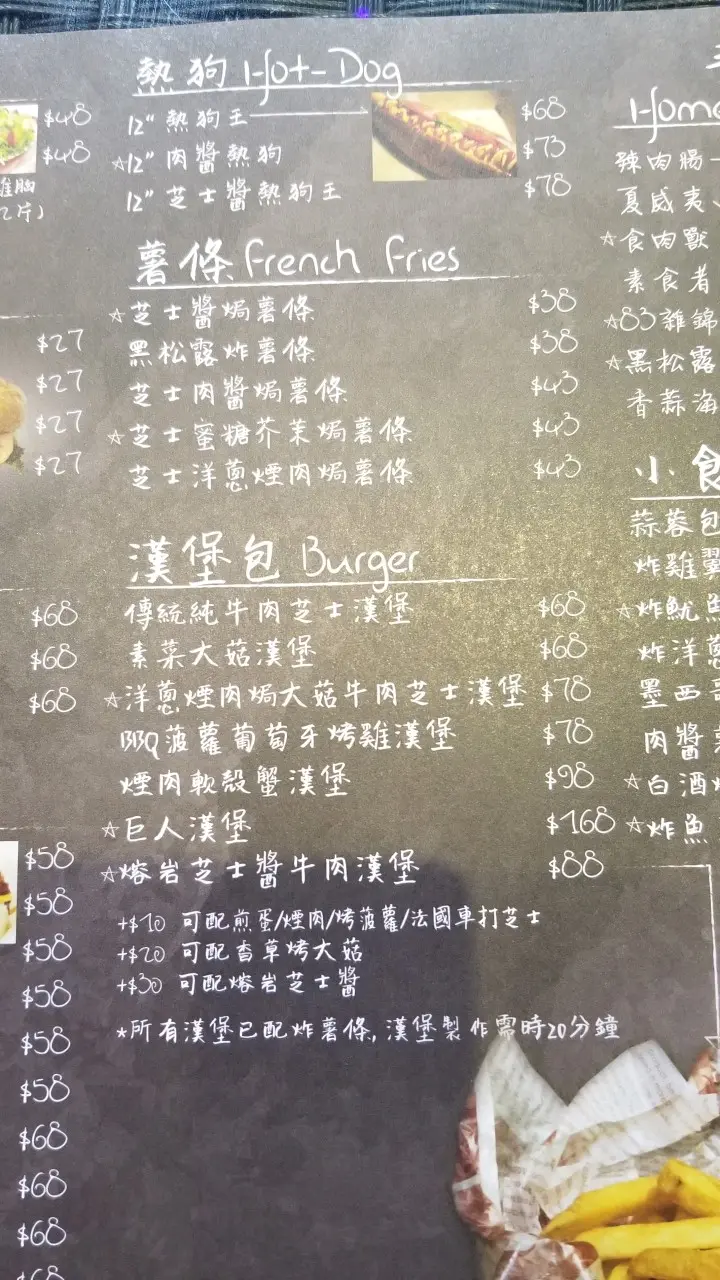 $48
$48
雞胸
2片)
$27
$27
$27
$27
$68
$68
$68
$58
$58
$58
$58
$58
$58
$68
$68
$68
$68
熱狗 Hot-Dog
12" 熱狗王 $68
☆12" 肉醬熱狗 $73
12" 芝士醬熱狗王 $78
薯條 French Fries
☆芝士醬焗薯條 $38
黑松露炸薯條 $38
芝士肉醬焗薯條 $43
☆芝士蜜糖芥茉焗薯條 $43
芝士洋蔥煙肉焗薯條 $43
漢堡包 Burger
傳統純牛肉芝士漢堡 $68
素菜大菇漢堡 $68
☆洋蔥煙肉焗大菇牛肉芝士漢堡 $78
BBQ菠蘿葡萄牙烤雞漢堡 $78
煙肉軟殼蟹漢堡 $98
☆巨人漢堡 $168
☆熔岩芝士醬牛肉漢堡 $88
+$10 可配煎蛋/煙肉/烤菠蘿/法國車打芝士
+$20 可配香草烤大菇
+$30 可配熔岩芝士醬
*所有漢堡已配炸薯條, 漢堡製作需時20分鐘
辣肉腸
夏威夷
☆食肉獸
素食者
☆83雜錦
☆黑松露
香蒜海
小食
蒜蓉包
炸雞翼
☆炸魷魚
炸洋蔥
墨西哥
肉醬
☆白酒
☆炸魚